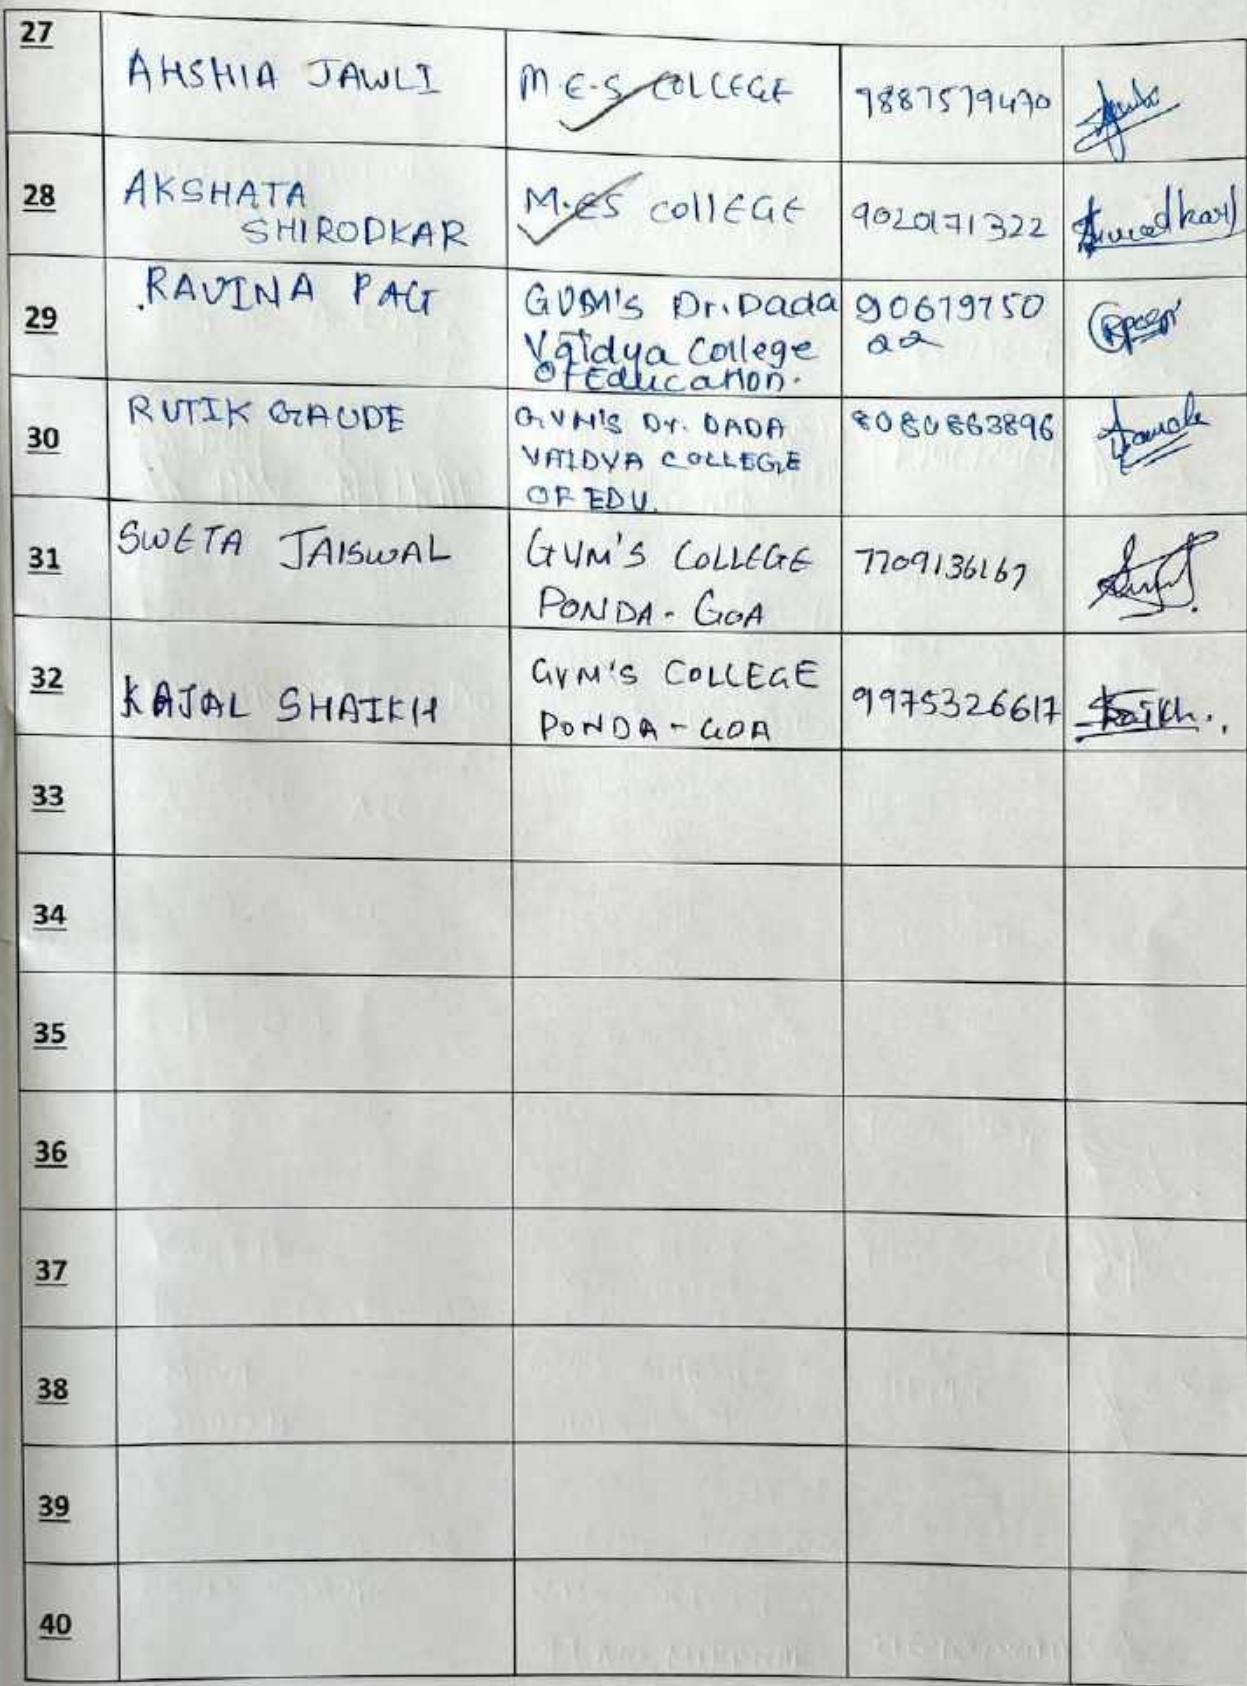 27
AHSHIA JAWLI
M.E.S COLLEGE
9887579470
28
AKSHATA
SHIRODKAR
M.ES COllEGE
9020171322
29
RAVINA PAG
GVM's Dr. Dada
Vaidya College
Of Education.
90679750
22
30
RUTIK GAUDE
G.VM's Dr. DADA
VAIDYA COLLEGE
OF EDU.
8080863896
31
SWETA JAISWAL
GVM'S COLLEGE
PONDA - GOA
7709136167
32
KAJAL SHAIKH
GVM'S COLLEGE
PONDA - GOA
9975326617
Shaikh.
33
34
35
36
37
38
39
40